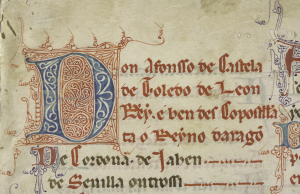 Don Afonsso de Castela
de Toledo de Leon
Rey. e ben des Conpostela
ta o Reyno daragõ
De Cordoua. de Jahen
de Seuilla outrossi